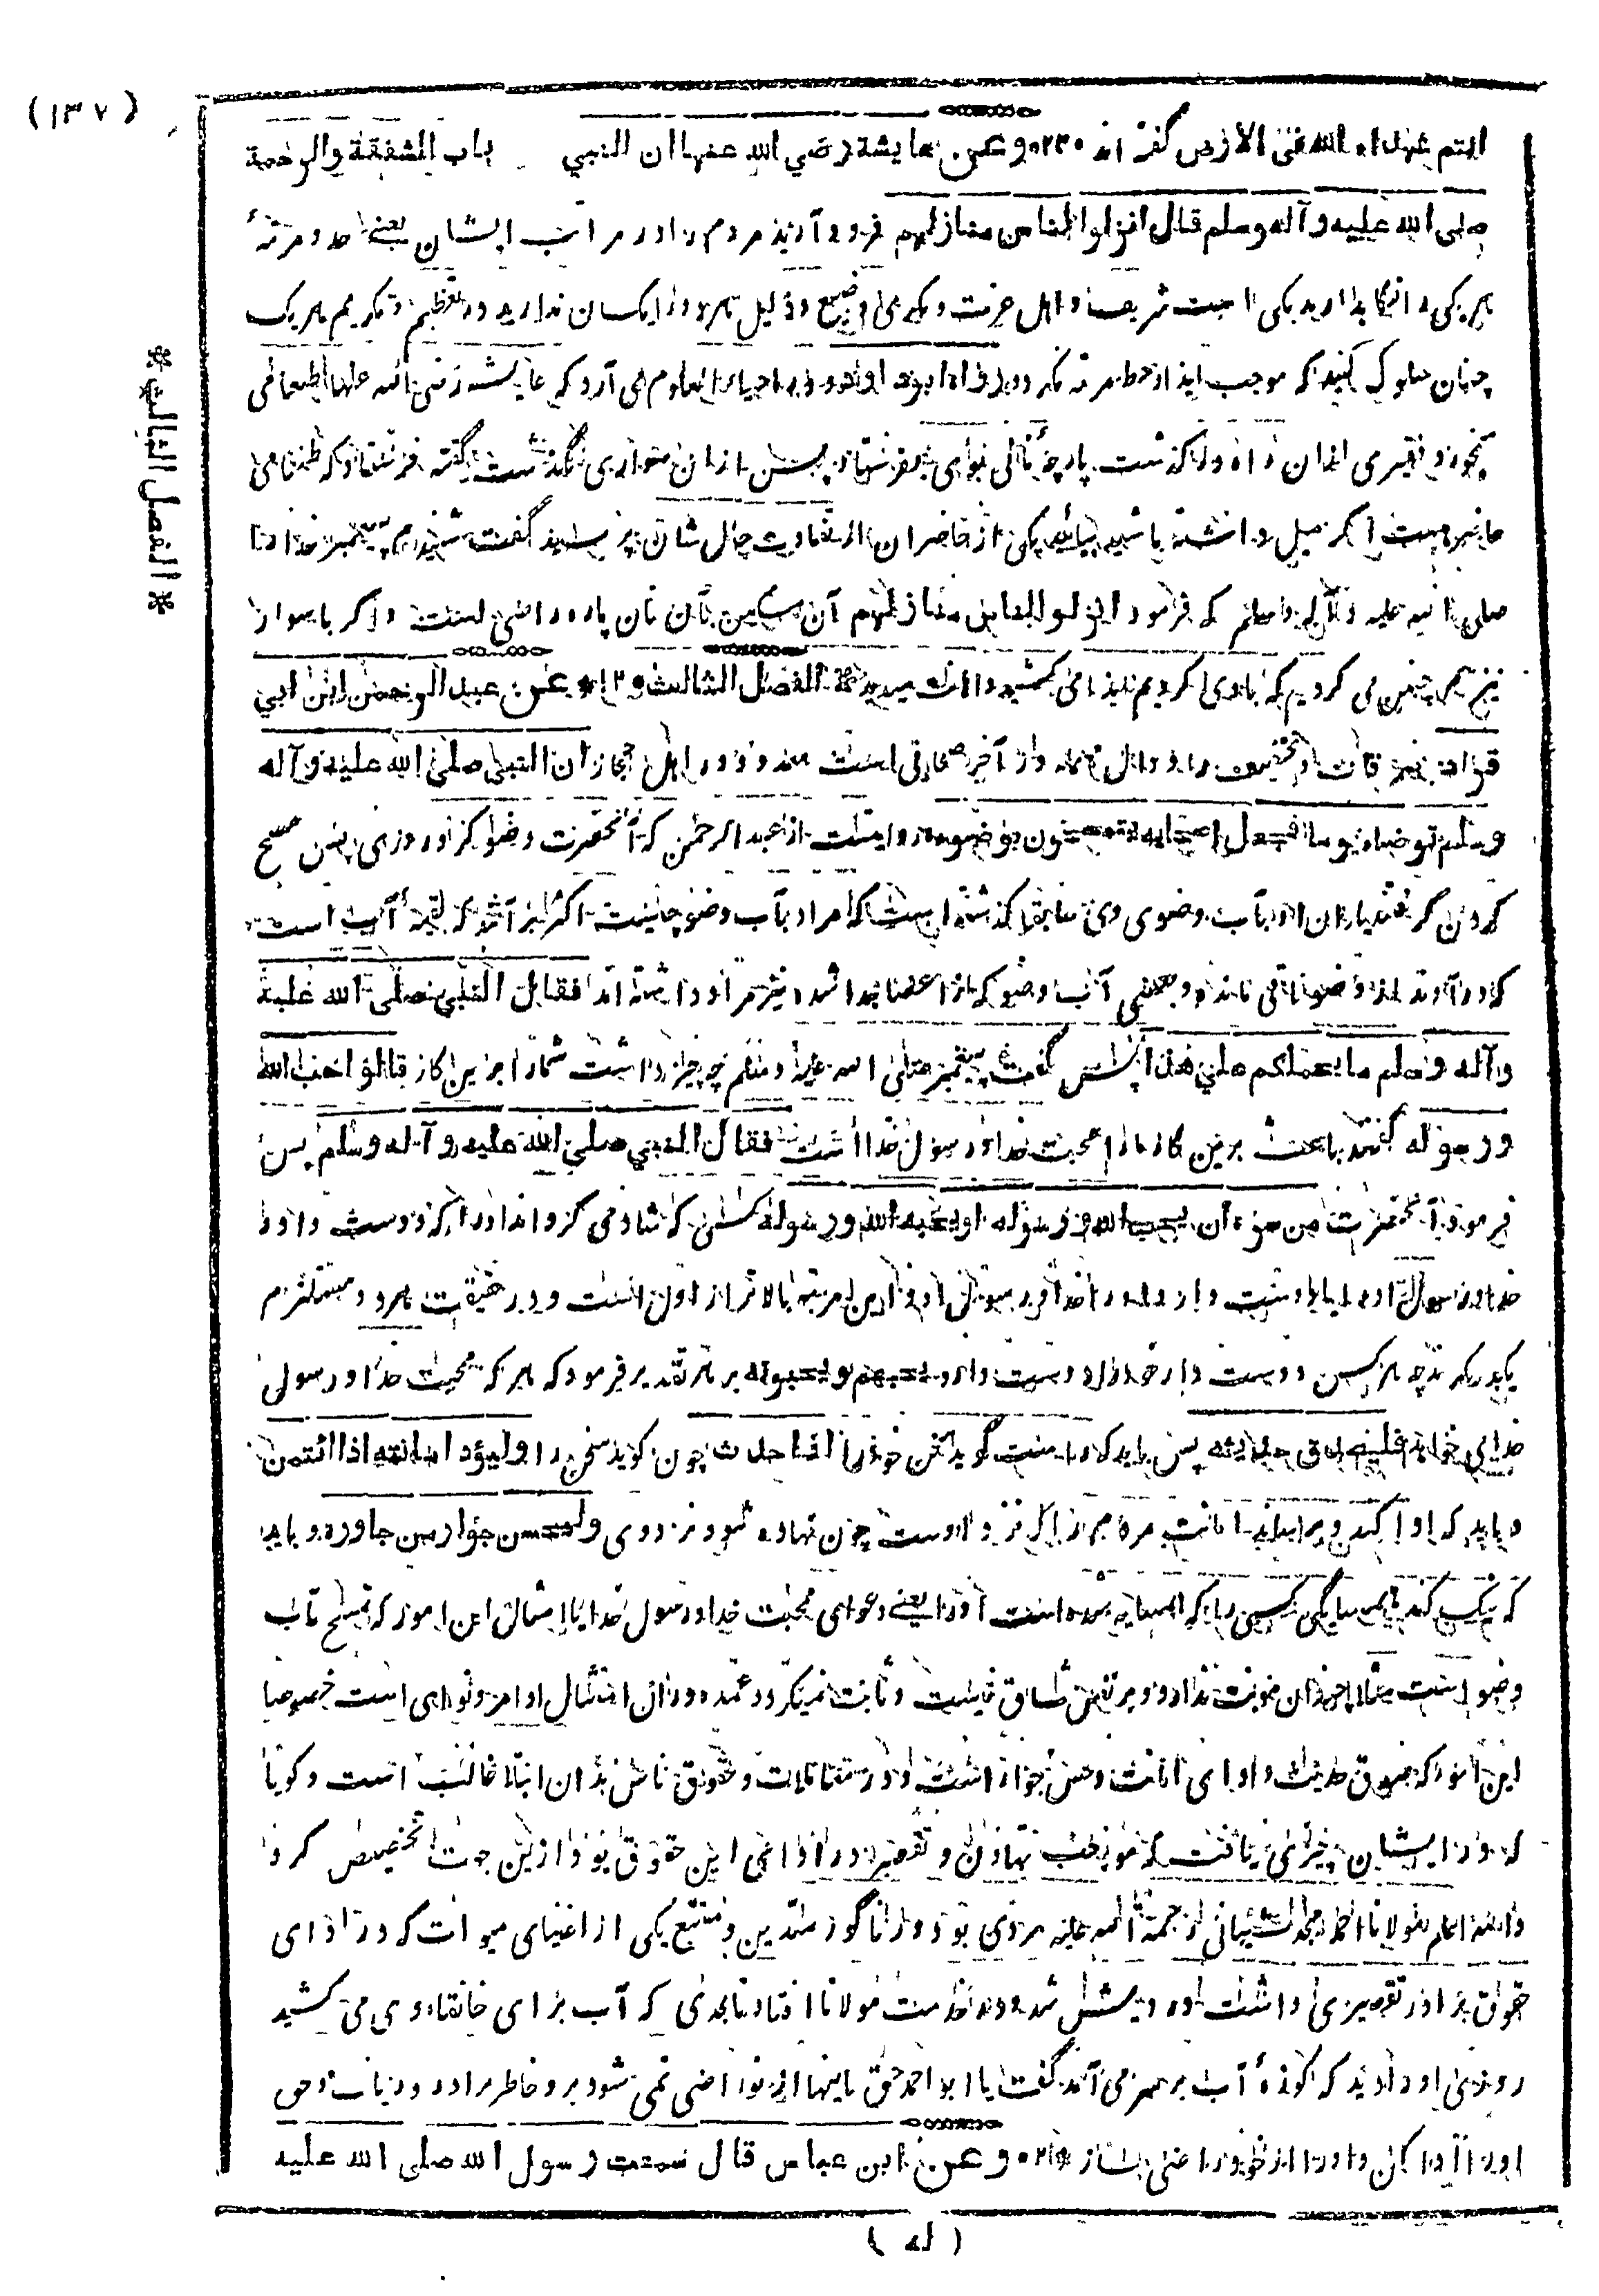 (١٣٧)
باب الشفقة والرحمة
انتم شهداء الله في الارض گفته اند ٢٣٠ وعن عايشة رضي الله عنها ان النبي
صلى الله عليه وآله وسلم قال انزلوا الناس منازلهم فرود آريد مردم را در مراتب ايشان يعنى حد و مرتبهٔ
هر يكى را نگاه داريد يكى است شريف و اهل عزت و يكى وضيع و ذليل هر دو را يكسان نداريد در تعظيم و تكريم هر يك
چنان سلوك كنيد كه موجب ايذا و حط مرتبه نگردد رواه ابو داود و در احياء العلوم مى آرد كه عايشه رضى الله عنها طعامى
ميخورد فقيرى ازان راه در گذشت پارچهٔ نانى بوى بفرستاد پس ازان سوارى بگذشت گفته فرستاد كه طعامى
حاضر است اگر ميل داشته باشيد بيائيد يكى از حاضران از تفاوت حال شان پرسيد گفت شنيدم پيغمبر خدا را
صلى الله عليه وآله وسلم كه فرمود انزلوا الناس منازلهم آن مسكين بآن نان پاره راضى است و اگر با سوار
نيز همچنين مى كرديم كه با وى كرديم ايذا مى كشيد و اهانت ميديد الفصل الثالث ١ وعن عبد الرحمن ابن ابي
قراد بضم قاف و تخفيف را و دال مهمله در آخر صحابى است معدود در اهل حجاز ان النبي صلى الله عليه وآله
وسلم توضأ يوما فجعل اصحابه يتمسحون بوضوئه روايت است از عبد الرحمن كه آنحضرت وضو كرد روزى پس مسح
كردن گرفتند ياران او بآب وضوى وى سابقا گذشته است كه مراد بآب وضو چيست اكثر بر آنند كه بقيهٔ آب است
كه در آوند بعد از وضو باقى مانده و بعضى آب وضو كه از اعضا جدا شده نيز مراد داشته اند فقال النبي صلى الله عليه
وآله وسلم ما يحملكم على هذا پس گفت پيغمبر صلى الله عليه وسلم چه چيز داشت شما را برين كار قالوا حب الله
ورسوله گفتند باعث برين كار ما را محبت خدا و رسول خدا است فقال النبي صلى الله عليه وآله وسلم پس
فرمود آنحضرت من سره ان يحب الله ورسوله او يحبه الله ورسوله كسى كه شاد مى گرداند او را كه دوست دارد
خدا و رسول او را يا دوست دارد او را خدا و رسول او و اين مرتبه بالاتر از اول است و در حقيقت هر دو مستلزم
يكديگرند چه هر كس دوست دارد خدا را دوست دارد يحبهم ويحبونه بر هر تقدير فرمود كه هر كه محبت خدا و رسول
خداى خواهد فليصدق حديثه پس بايد كه راست گويد سخن خود را اذا حدث چون گويد سخن را وليؤد امانته اذا ائتمن
و بايد كه ادا كند و برساند امانت مردم را كه نزد اوست چون نهاده شود نزد وى وليحسن جوار من جاوره و بايد
كه نيك كند همسايگى كسى را كه همسايه شده است او را يعنى دعواى محبت خدا و رسول خدا با امثال اين امور كه تمسح بآب
وضو است مثلا چندان مؤنت ندارد و بر نفس شاق نيست و ثابت نميگردد عمده دران امتثال اوامر و نواهى است خصوصا
اين امور كه صدق حديث و اداى امانت و حسن جوار است و در معاملات و حقوق ناس بدان ابتلا غالب است و گويا
كه در ايشان چيزى يافت كه موجب تهاون و تقصير در اداى اين حقوق بود ازين جهت تخصيص كرد
والله اعلم مولانا احمد مجد الشيبانى رحمة الله عليه مردى بود در ناگور متدين و متتبع يكى از اغنياى ميوات كه در اداى
حقوق برادر تقصيرى داشت بخدمت مولانا افتاد تا بحدى كه آب براى خانقاه وى مى كشيد
روزى او را ديد كه كوزهٔ آب بر سر مى آرد گفت يا ابو احمد حق باينها از تو راضى نمى شود برو خاطر برادر درياب و حق
او را ادا كن و او را از خود راضى بساز ٢ وعن ابن عباس قال سمعت رسول الله صلى الله عليه
* الفصل الثالث *